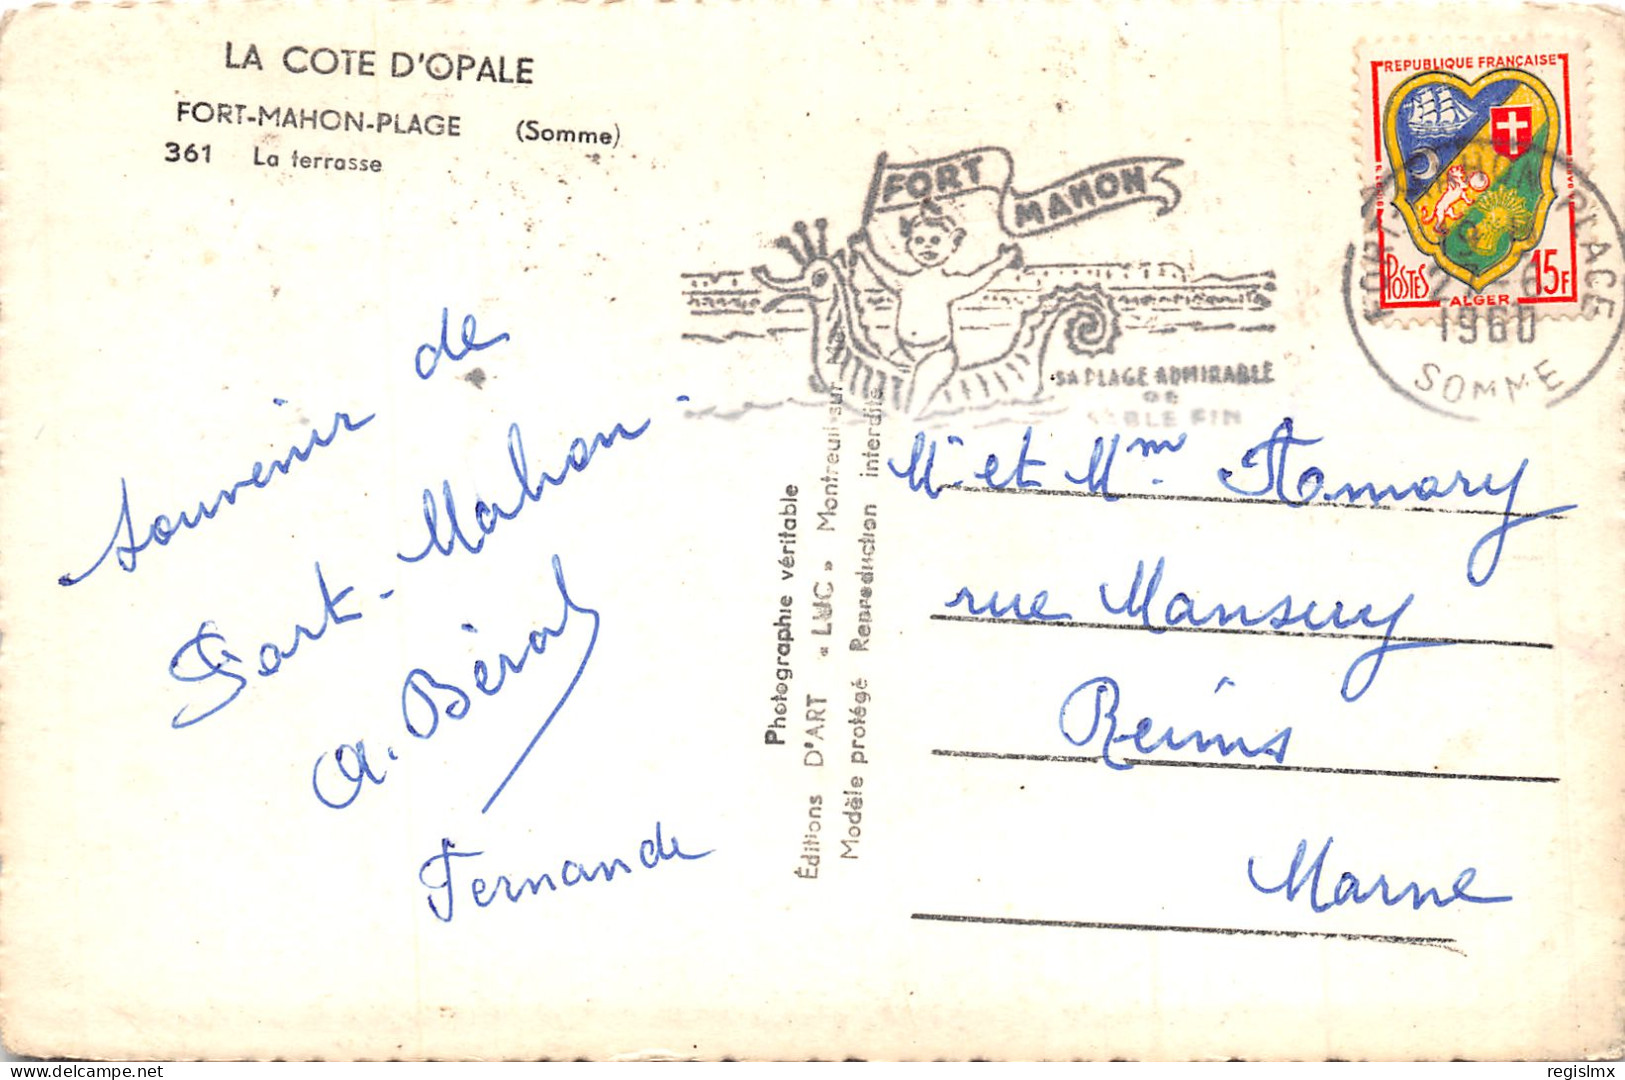 LA COTE D'OPALE
FORT-MAHON-PLAGE (Somme)
361 La terrasse
Souvenir de
Fort-Mahon.
A. Bérol
Fernande
Photographie véritable
Éditions D'ART « LUC » Montreuil-sur-Mer
Modèle protégé Reproduction interdite
FORT MAHON
SA PLAGE ADMIRABLE
DE
SABLE FIN
REPUBLIQUE FRANÇAISE
POSTES
ALGER
15F
FORT-MAHON-PLAGE
1960
SOMME
Mr et Mm
rue Mansuy
Reims
Marne
regislmx